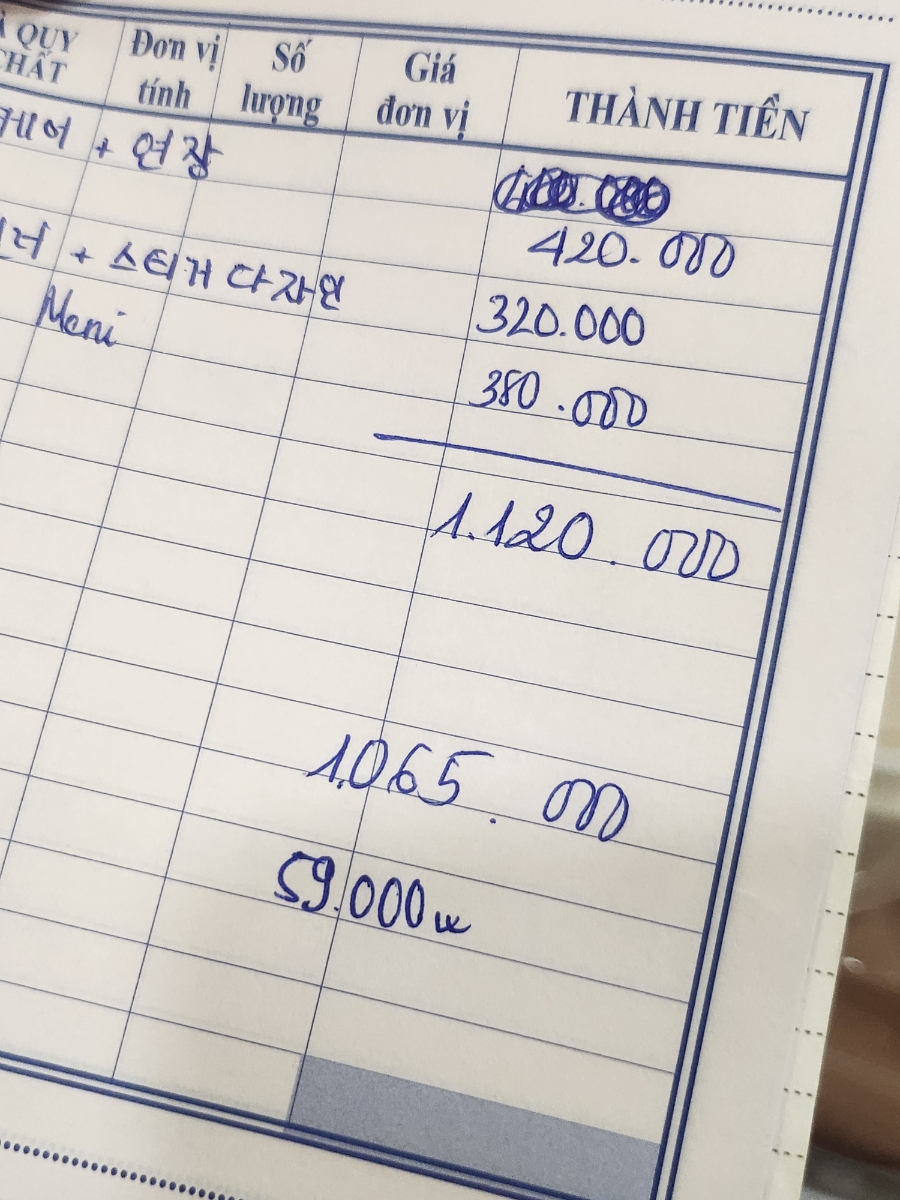 QUY CHẤT Đơn vị tính Số lượng Giá đơn vị THÀNH TIỀN
케어 + 연장
420.000
+ 스티커 다자인 320.000
Meni 380.000
1.120.000
1.065.000
59.000w